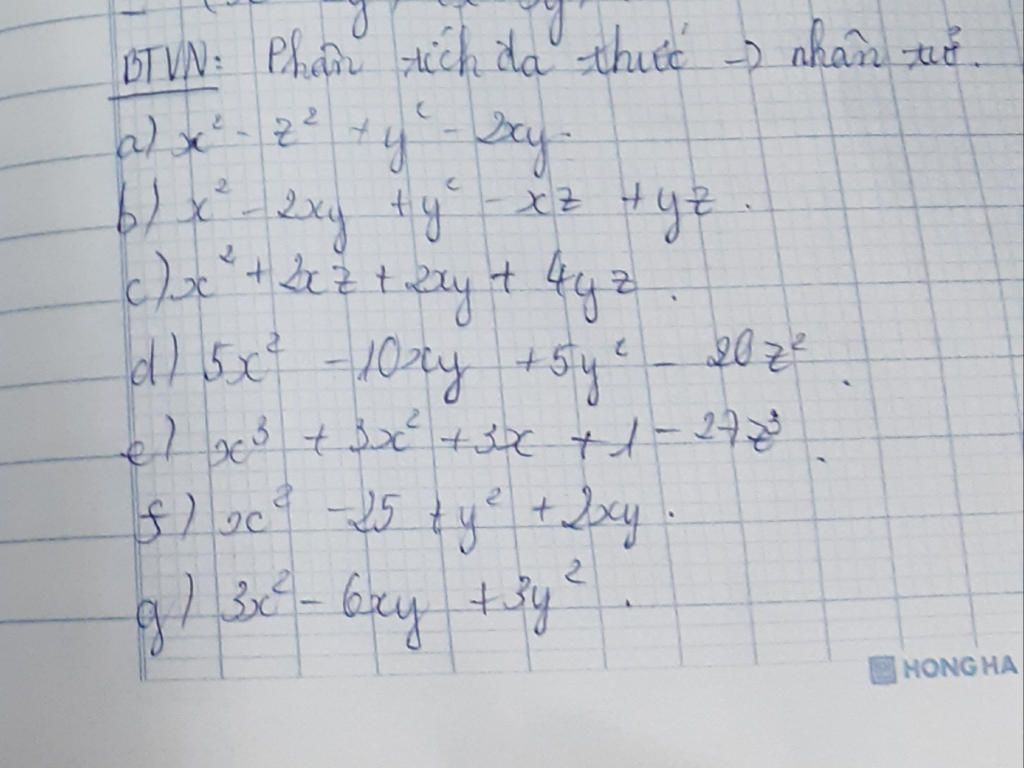 BTVN: Phân tích đa thức → nhân tử.
a) x² - z² + y² - 2xy.
b) x² - 2xy + y² - xz + yz.
c) x² + 2xz + 2xy + 4yz.
d) 5x² - 10xy + 5y² - 20z².
e) x³ + 3x² + 3x + 1 - 27z³.
f) x² - 25 + y² + 2xy.
g) 3x² - 6xy + 3y².
HONG HA